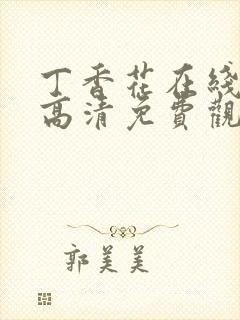 丁香花在綫
高清免費觀
郭美美